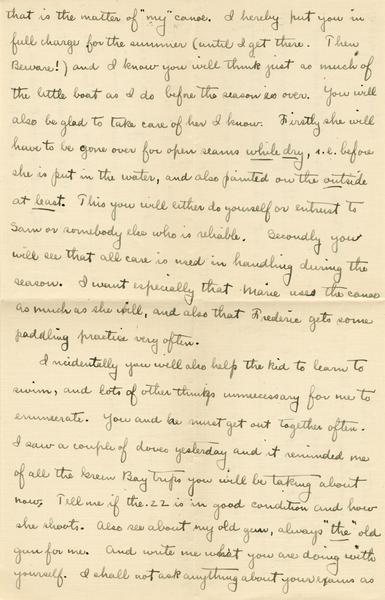 that is the matter of "my" canoe. I hereby put you in
full charge for the summer (until I get there. Then
Beware!) and I know you will think just as much of
the little boat as I do before the season is over. You will
also be glad to take care of her I know. Firstly she will
have to be gone over for open seams while dry, i.e. before
she is put in the water, and also painted on the outside
at least. This you will either do yourself or entrust to
Sam or somebody else who is reliable. Secondly you
will see that all care is used in handling during the
season. I want especially that Marie uses the canoe
as much as she will, and also that Frederic gets some
paddling practise very often.
Incidentally you will also help the kid to learn to
swim, and lots of other things unnecessary for me to
enumerate. You and he must get out together often.
I saw a couple of doves yesterday and it reminded me
of all the Green Bay trips you will be taking about
now. Tell me if the .22 is in good condition and how
she shoots. Also see about my old gun, always "the" old
gun for me. And write me what you are doing with
yourself. I shall not ask anything about your exams as